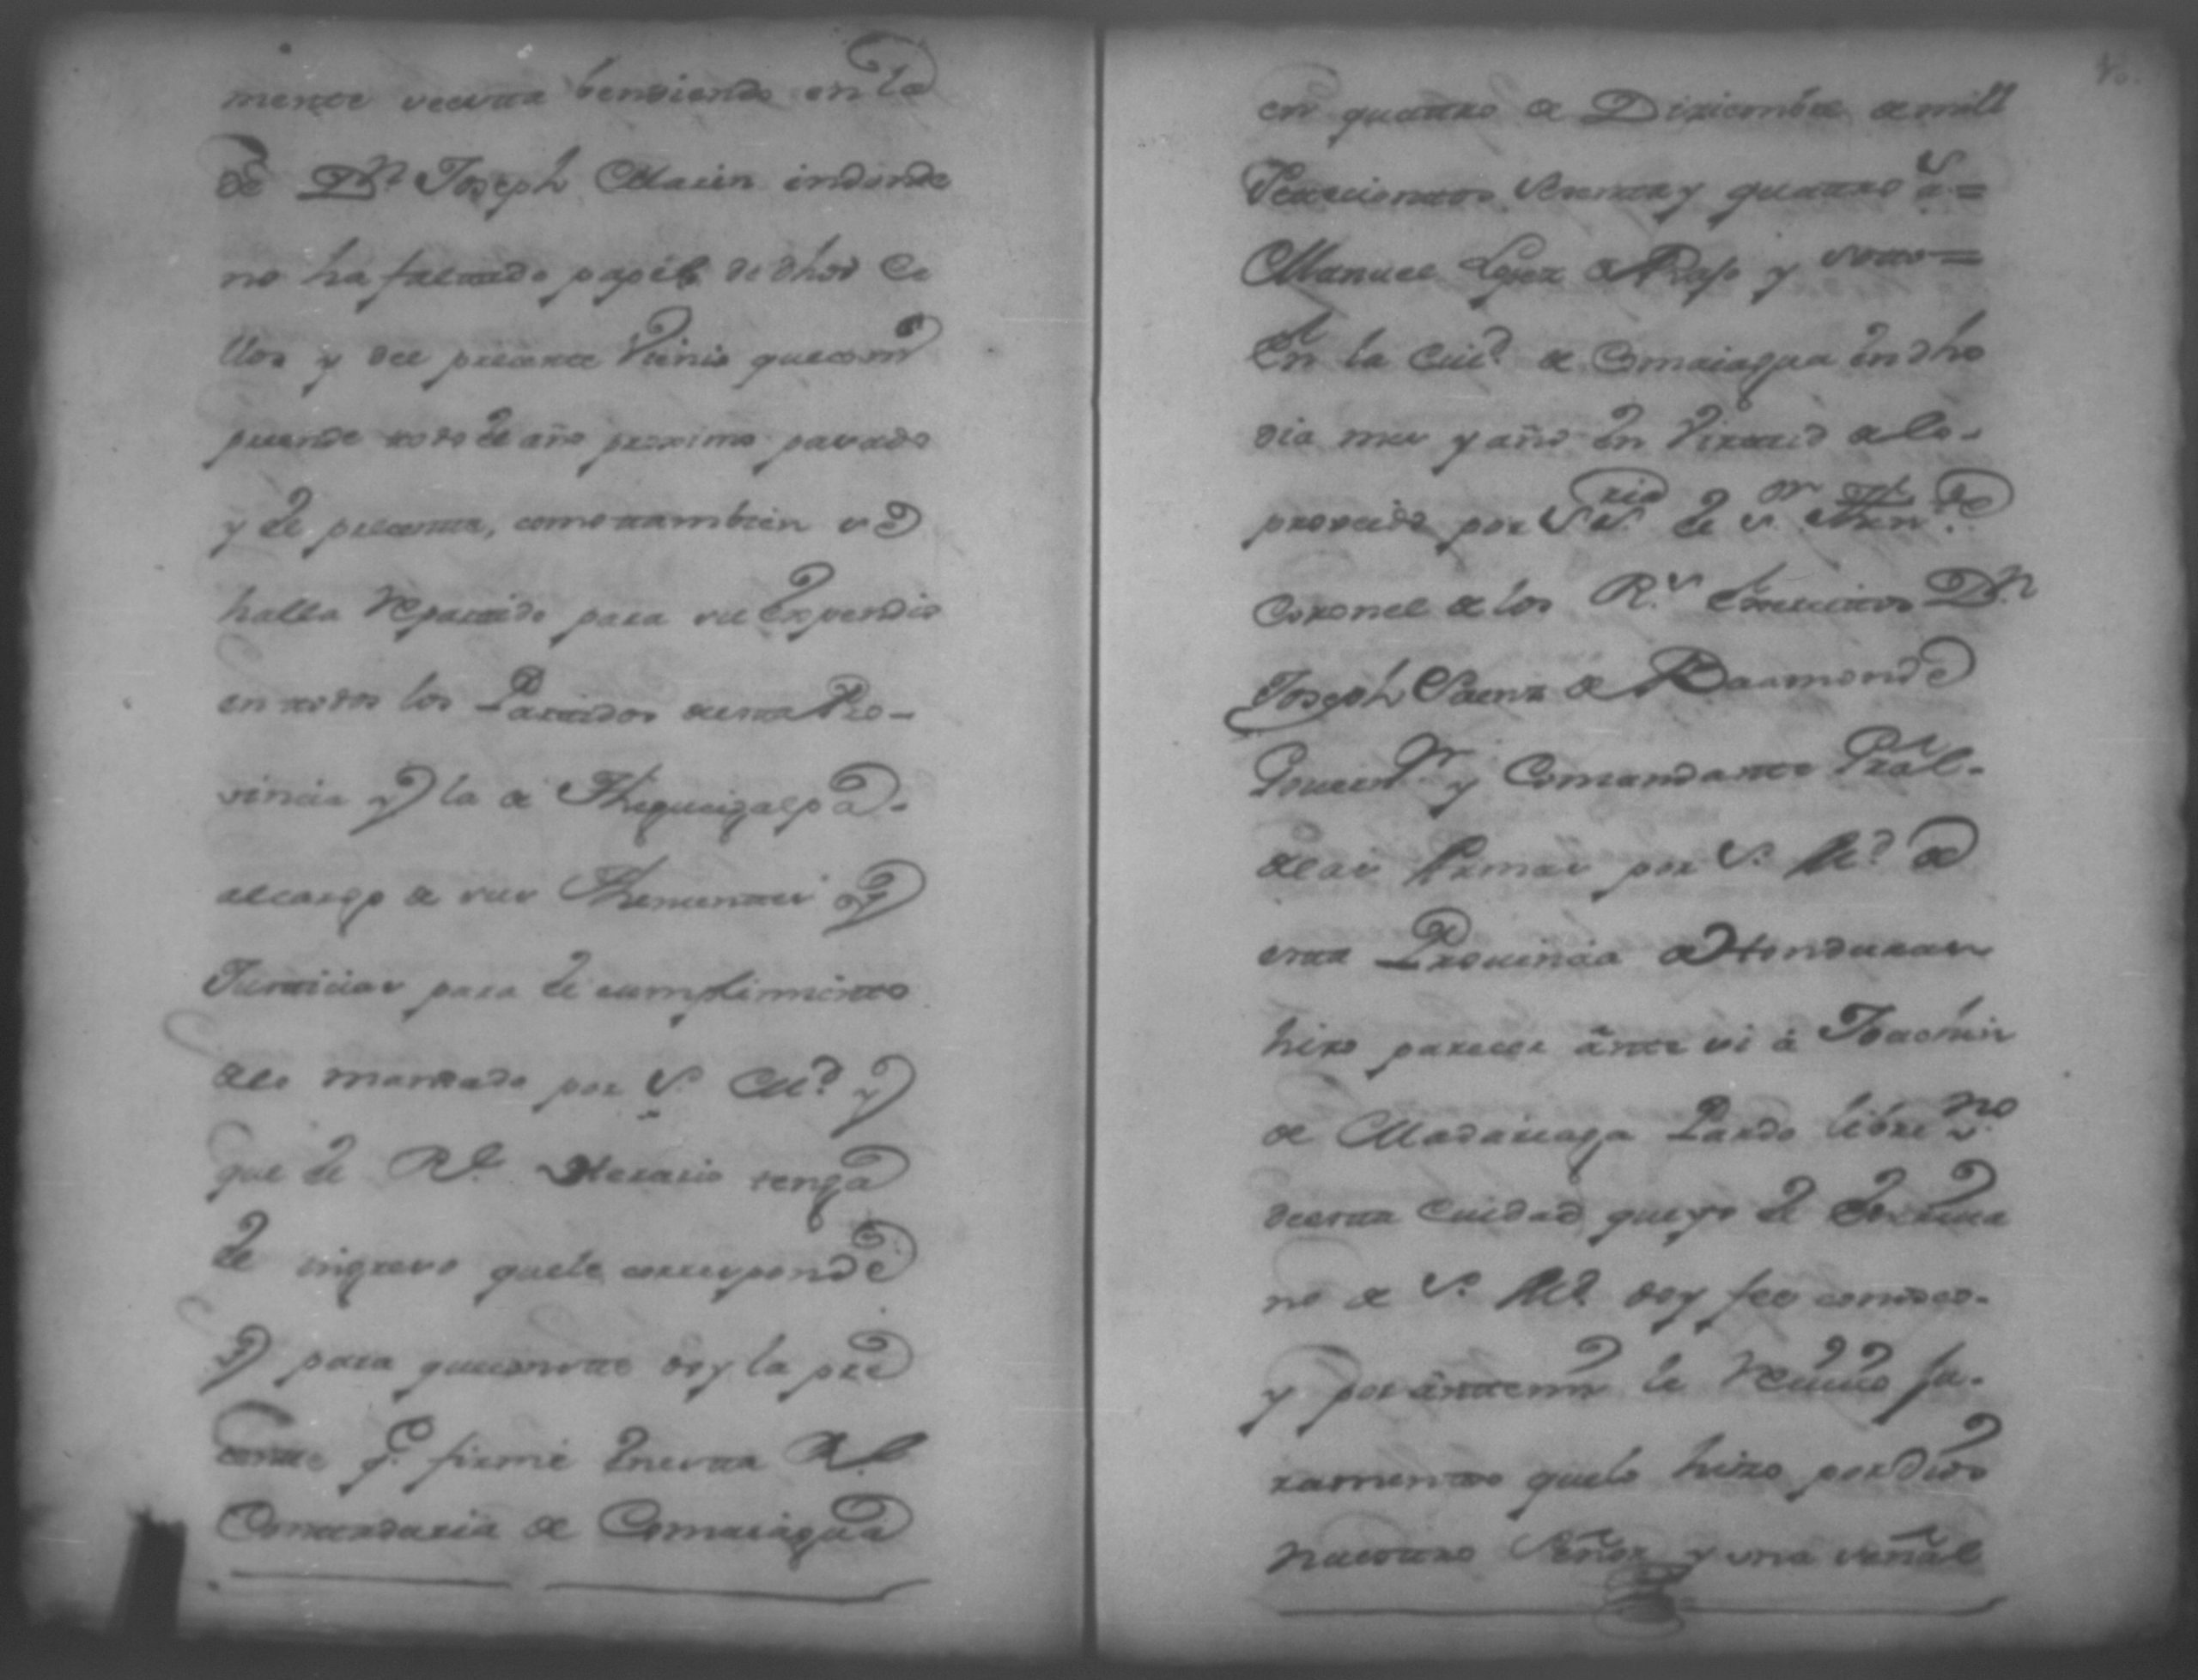 mente vecina bendiendo en la
de Dn. Joseph Maria indonde
no ha faltado papél de dhos Ce
llos y del precente Vienio que com
puende todo el año proximo pasado
y el precente, como tambien se
halla Repartido para su Expendio
en todos los Partidos de esta Pro-
vincia y la de Thegucigalpa.
al cargo de sus Thenientes y
Justicias para el cumplimiento
de lo mandado por S. M.d y
que el Rl. Herario tenga
el ingreso que le corresponde
y para que conste doy la pre
cente q.e firmé En esta Rl.
Comandaria de Comaiagua
en quatro de Diziembre de mill
Setecientos Sesenta y quatro a.s =
Manuel Lopez de Prajo y Soto =
En la Ciud. de Comaiagua En dho
dia mes y año En Virtud de lo-
proveido por S Sria el Sr. Then.te
Coronel de los R.s Exercitos Dn.
Joseph Saenz de Baamonde
Gouern.or y Comandante Gral-
de las Armas por S. M.d de
esta Prouincia de Honduras
hizo parecer ante si à Joachin
de Madariaga Pardo libre v.no
de esta Ciudad que yo el Escriua
no de S. Md. doy fee conosco-
y por ante mi le Reciuio Ju-
ramento que lo hizo por Dios
Nuestro Señor y una señal